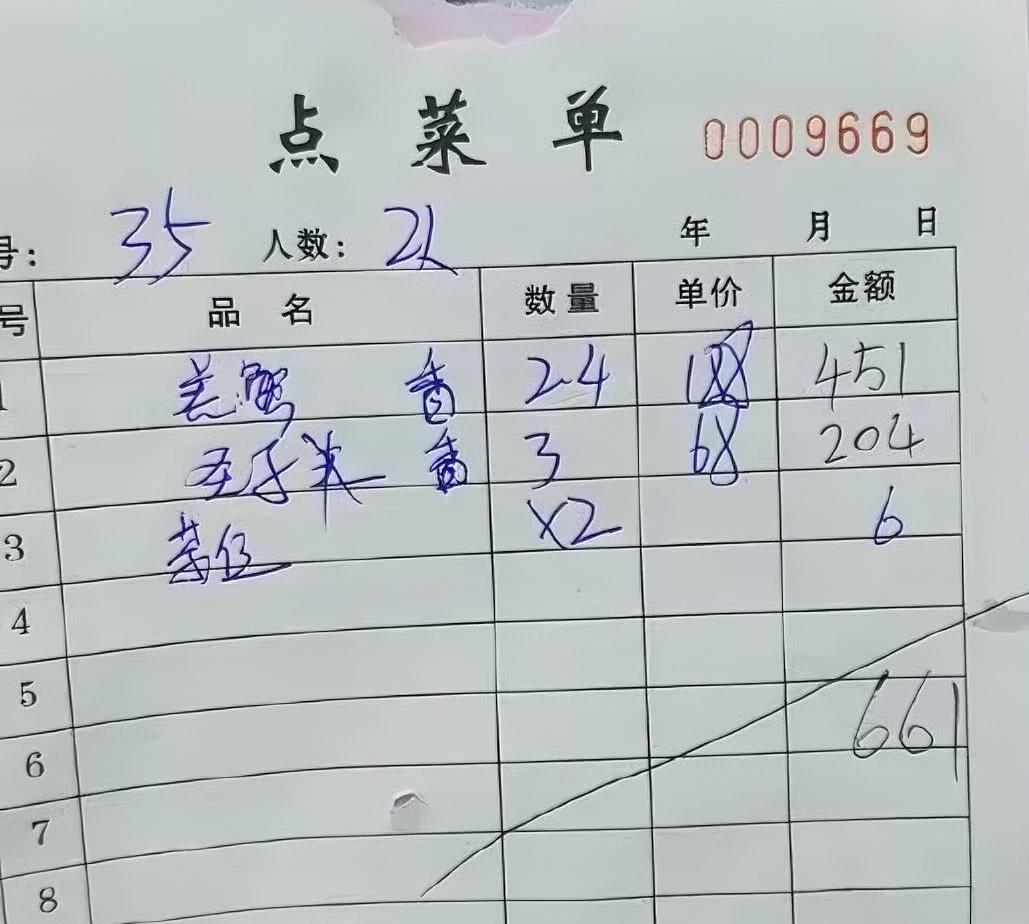 点菜单 0009669
号: 35 人数: 2人 年 月 日
号 品名 数量 单价 金额
1 羔蟹 香 2.4 188 451
2 香 3 68 204
3 茶位 x2 6
4
5
661
6
7
8